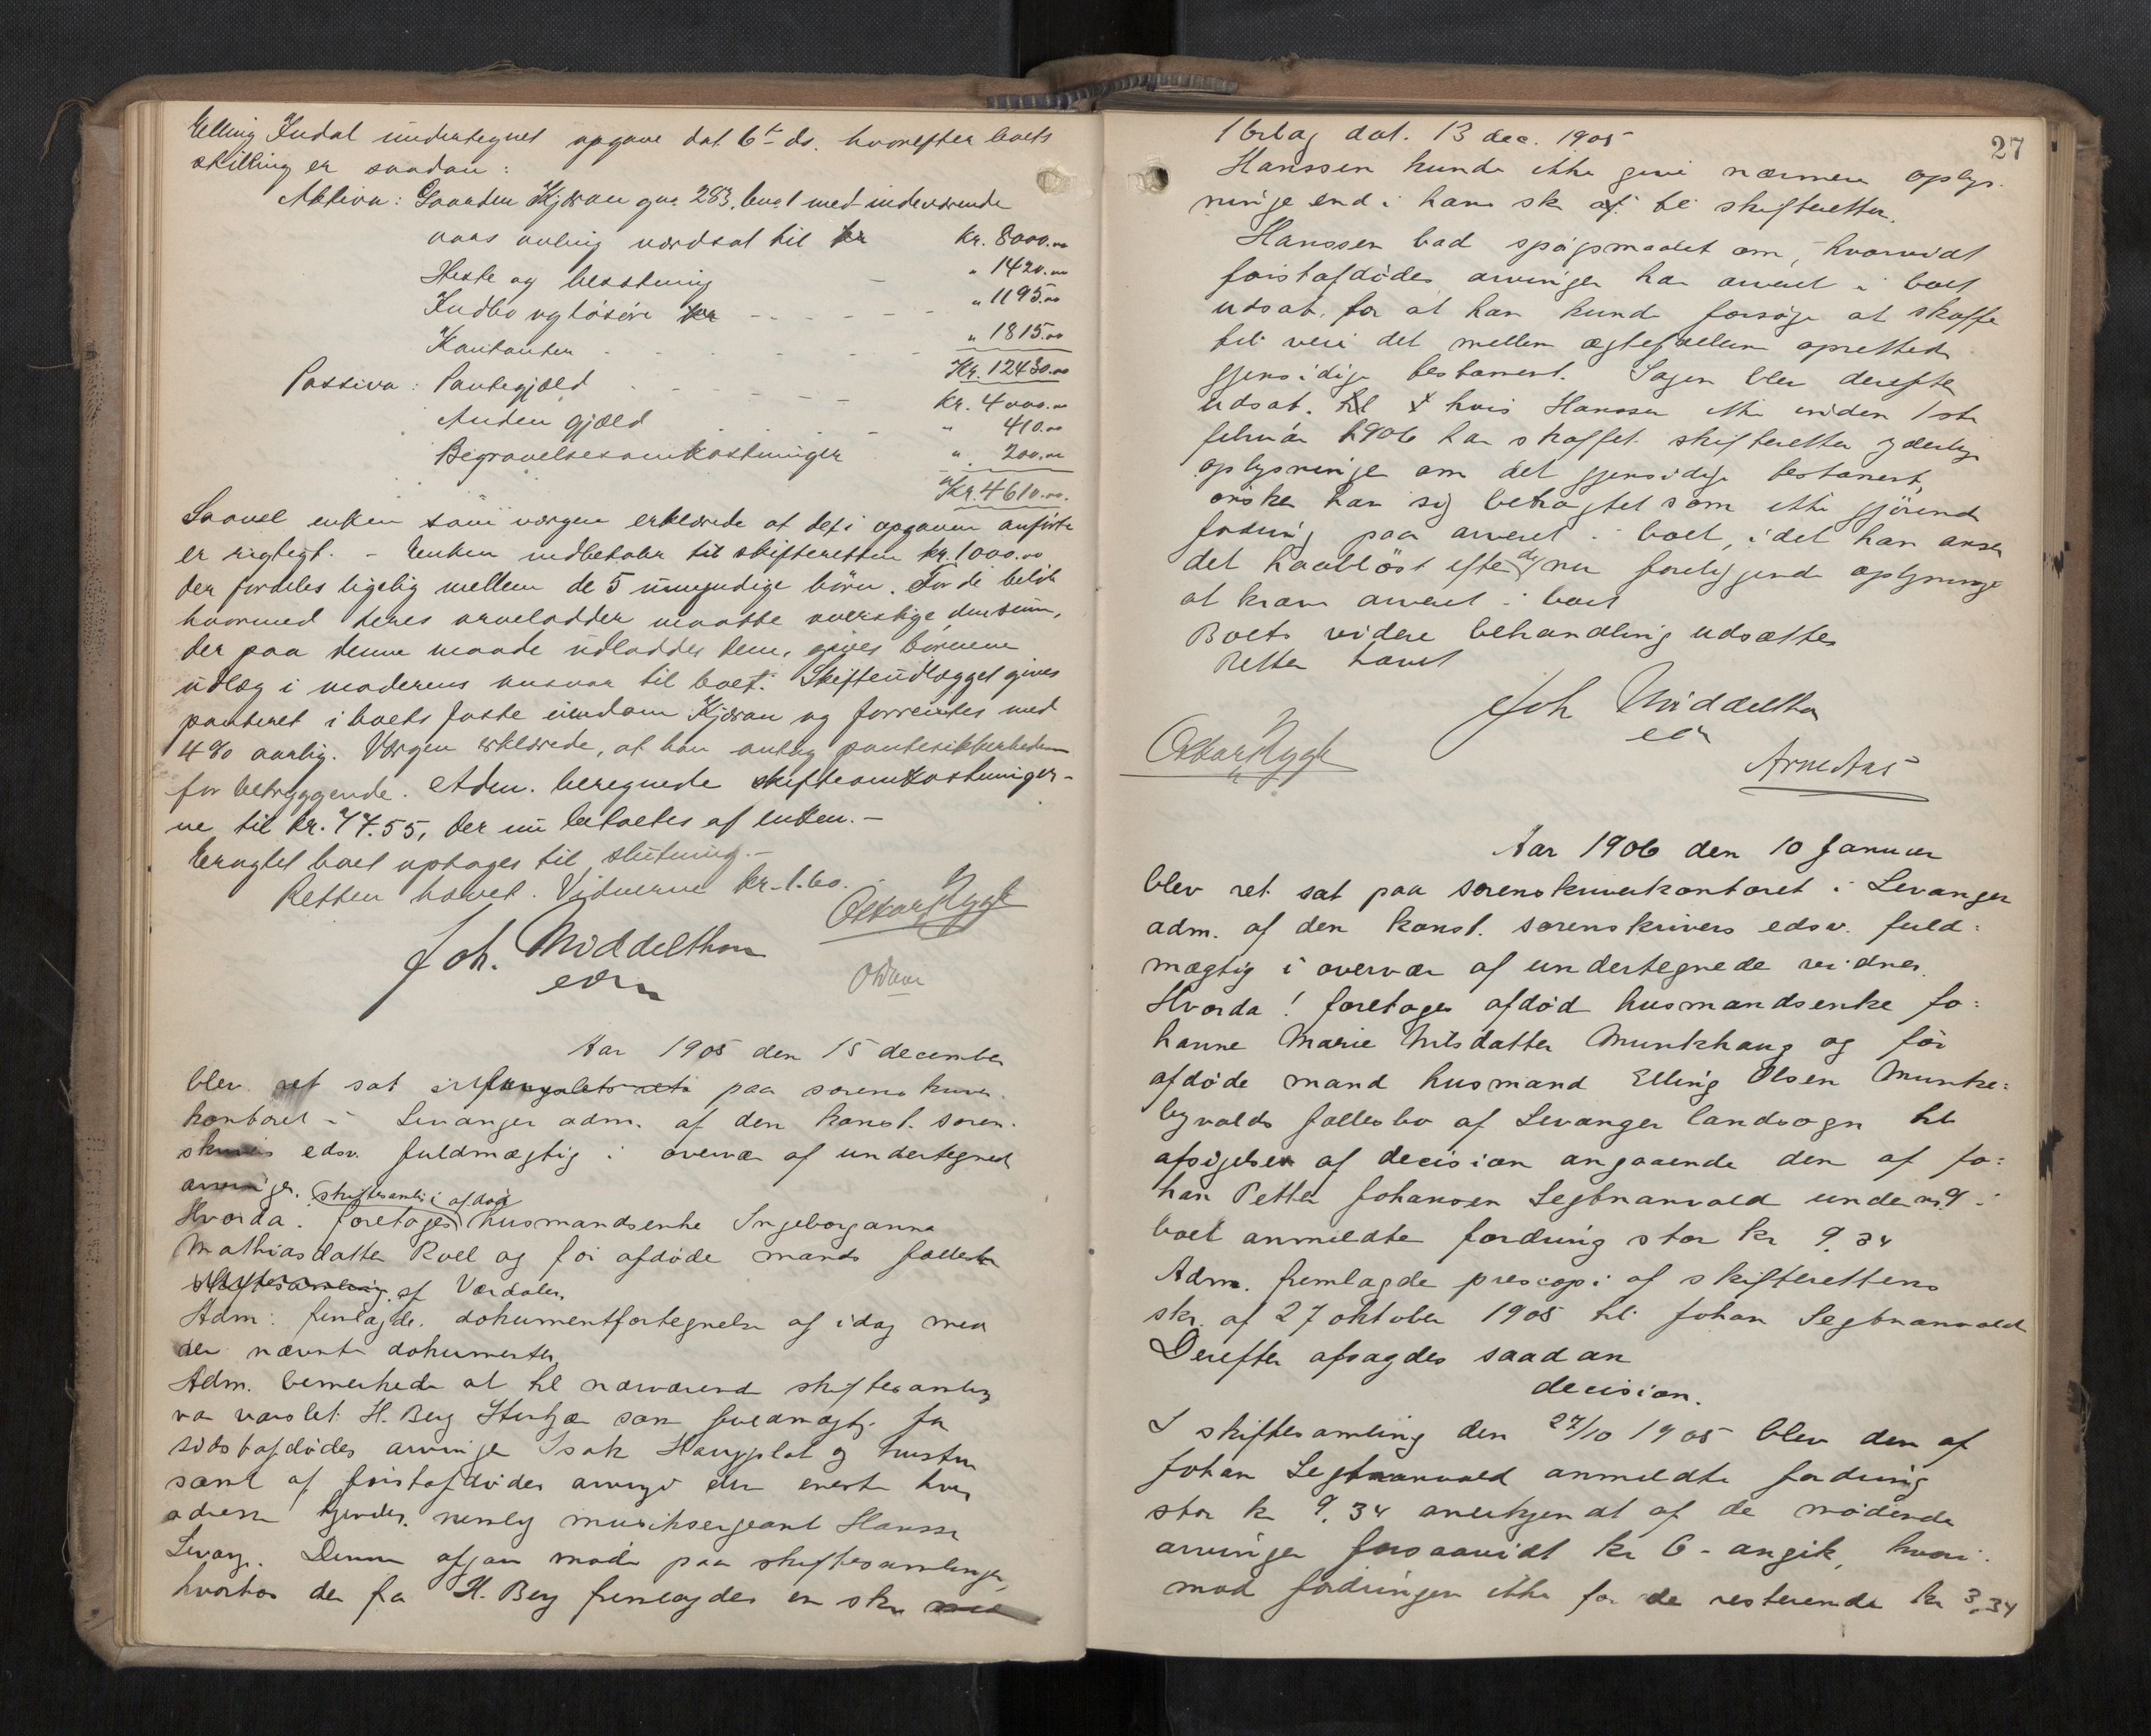 Elling Indal undertegnet opgave dat 6te ds. hvorefter boets
stilling er saadan:
Aktiva: Gaarden Kjæran gno. 283, bno. 1 med indeværende
aars avling værdsat til kr Kr. 8000.00
Heste og besætning - " 1420.00
Indbo og løsøre kr - - - - - " 1195.00
Kontanter - - - - - " 1815.00
Kr. 12430.00
Passiva: Pantegjæld - - - - - Kr. 4000.00
Anden gjæld - - " 410.00
Begravelsesomkostninger " 200.00
Kr. 4610.00.
Saavel enken som værgen erklærede at det i opgaven anførte
er rigtigt. - Enken indbetaler til skifteretten kr. 1000.00
der fordeles ligelig mellem de 5 umyndige børn. For de beløb
hvormed deres arvelodder maatte overstige den sum,
der paa denne maade udloddes dem, gives børnene
udlæg i moderens ansvar til boet. Skifteudlægget gives
panteret i boets faste eiendom Kjæran og forrentes med
4% aarlig. Værgen erklærede, at han antog pantesikkerheden
for betryggende. Adm. beregnede skifteomkostninger-
ne til kr. 77.55, der nu betaltes af enken. -
Eragtet boet optages til slutning. -
Retten hævet. Vidnerne kr. 1.60.
Oskar Nygk
Joh. Middelthon
edsv
Aar 1905 den 15 december
blev ret sat i paa sorenskriver
kontoret i Levanger adm. af den konst. soren-
skrivers edsv. fuldmægtig i overvær af undertegned
arvinger. skiftesamli i afdød
Hvorda: foretoges husmandsenke Ingeborganna
Mathiasdatter Roel og før afdøde mands fællesbo
skiftesamling af Værdalen
Adm: fremlagde dokumentfortegnelse af idag med
der nævnte dokumenter
Adm. bemerkede at til nærværende skiftesamling
var varslet H. Berg som fuldmægtig for
sidstafdødes arvinger Isak Haugplat og hustru
samt af førstafdødes arvinge den eneste hvis
adresse kjendes, nemlig musiksergeant Hanssen
Levanger. Denne afgav møde paa skiftesamlingen,
hvorhos der fra H. Berg fremlagdes en skr
27
dat. 13 dec. 1905
Hanssen kunde ikke give nærmere oplys-
ninger end i hans skr af til skifteretten.
Hanssen bad spørgsmaalet om, hvorvidt
førstafdødes arvinger har arveret i boet
udsat, for at han kunde forsøge at skaffe
tilveie det mellem ægtefællerne oprettede
gjensidige testament. Sagen blev derefter
udsat. hvis Hanssen ikke inden 1ste
februar 1906 har skaffet skifteretten yderlige
oplysninger om det gjensidige testament,
ønsker han sig betragtet som ikke gjørende
fodring paa arveret i boet, idet han anser
det haabløst efter de nu foreliggende oplysninger
at kræve arveret i boet
Boets videre behandling udsættes
Retten hævet
Joh Middelthon
edsv
Oskar Nygk
Arne Aas
Aar 1906 den 10 Januar
blev ret sat paa sorenskriverkontoret i Levanger
adm. af den konst. sorenskrivers edsv. fuld-
mægtig i overvær af undertegnede vidner.
Hvorda! foretoges afdød husmandsenke Jo-
hanne Marie Nilsdatter Munkhaug og før
afdøde mand husmand Elling Olsen Munke-
byvalds fællesbo af Levanger landsogn til
afsigelse af decision angaaende den af Jo-
han Petter Johansen Segtnanvald under no. 9 i
boet anmeldte fordring stor kr 9.34
Adm. fremlagde prescopi af skifterettens
skr. af 27 oktober 1905 til Johan Segtnanvald
Derefter afsagdes saadan
decision.
I skiftesamling den 27/10 1905 blev den af
Johan Segtnanvald anmeldte fordring
stor kr 9.34 anerkjendt af de mødende
arvinger forsaavidt kr 6- angik, hvori-
mod fordringen ikke for de resterende kr 3,34